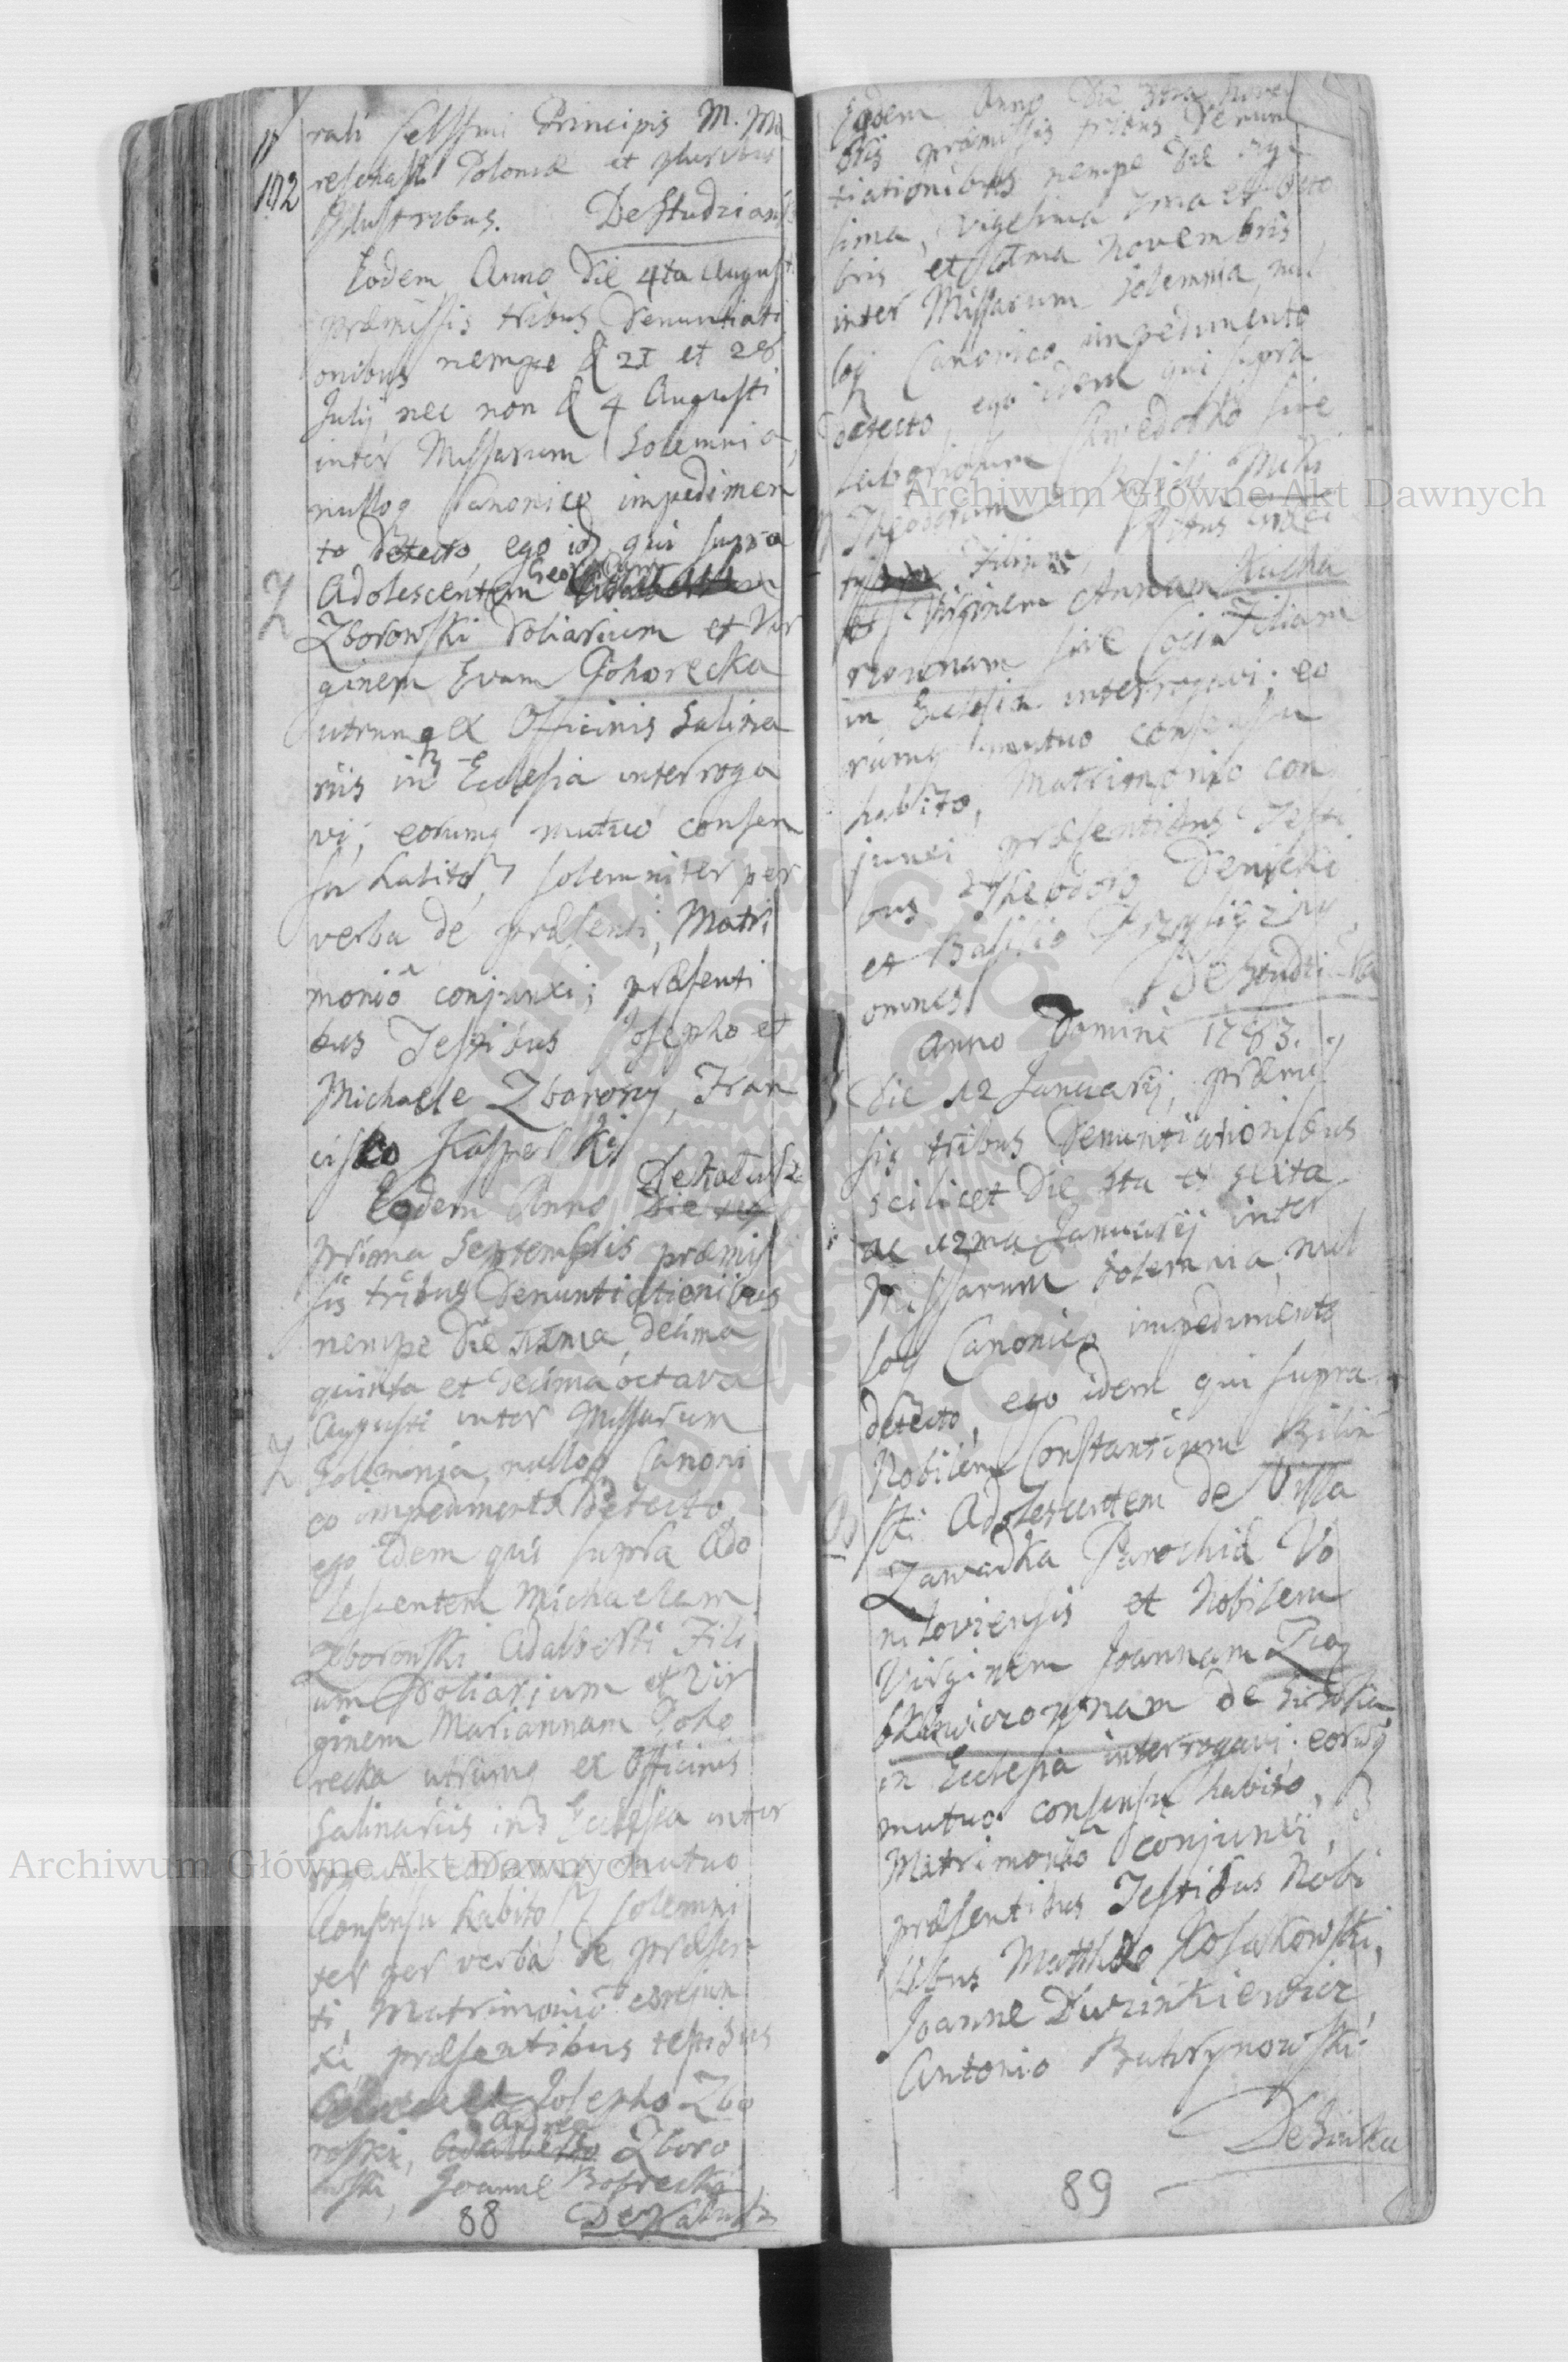 17
172
rali Celssmi Principis M. Ma
reschalli Poloniæ et pluribus
Illustribus. De Studzian
Eodem Anno Die 4ta August
præmissis tribus Denuntiati
onibus nempe d 21 et 28
Julij nec non d 4 Augusti
inter Missarum Solemnia,
nulloq Canonico impedimen
to detecto, ego id qui supra
Adolescentem
Zborowski Doliarium et Vir
ginem Evam Pohorecka
utrumq ex Officinis Salina
riis in Ecclesia interroga
vi, eorumq mutuo consen
su habito, solemniter per
verba de præsenti, Matri
monio conjunxi; præsenti
bus Testibus Josepho et
Michaele Zborowy, Fran
cisco Kaspelki
De Katusz
Eodem Anno Die
prima Septembris præmis
sis tribus Denuntiationibus
nempe Die 11ma, decima
quinta et decima octava
Augusti inter Missarum
Solemnia, nulloq Canoni
co impedimento detecto
ego idem qui supra Ado
lescentem Michaelem
Zborowski Adalberti Fili
um Doliarium et Vir
ginem Mariannam Poho
recka utrumq ex Officinis
Salinariis in Ecclesia inter
rogavi eorumq mutuo
Consensu habito, solemni
ter per verba de præsen
ti, Matrimonio conjun
xi præsentibus testibus
Josepho Zbo
roski, Andrea Zboro
wski, Joanne
De Katusz
88
Eodem Anno Die novem
bris præmissis tribus Denun
tiationibus nempe Die vige
sima, vigesima 7ma et octo
bris et Novembris
inter Missarum Solemnia, nul
loq Canonico impedimento
detecto, ego idem qui supra
Laboriosum sive
Theodorum Basilij Miki
Filium, Ritus Græci
et Virginem Annam Kucha
rzownam sive Filiam
in Ecclesia interrogavi; eo
rumq mutuo consensu
habito, Matrimonio con
junxi præsentibus Testi
bus Theodoro Denicki
et Basilio
omnes De Studzianka
Anno Domini 1783.
Die 12 Januarij, præmis
sis tribus Denuntiationibus
scilicet Die 5ta et sexta
ac 12ma Januarij inter
Missarum Solemnia, nul
loq Canonico impedimento
detecto, ego idem qui supra
Nobilem Constantium Bilin
ski Adolescentem de Villa
Zawadka Parochiæ Vo
niloviensis et Nobilem
Virginem Joannam
de Siwka
in Ecclesia interrogavi; eorumq
mutuo consensu habito,
Matrimonio conjunxi,
præsentibus Testibus Nobi
libus Matthæo Kosakowski,
Joanne Dwizinkiewicz
Antonio Butrynowski
De Siwka
89
Archiwum Główne Akt Dawnych
Archiwum Główne Akt Dawnych